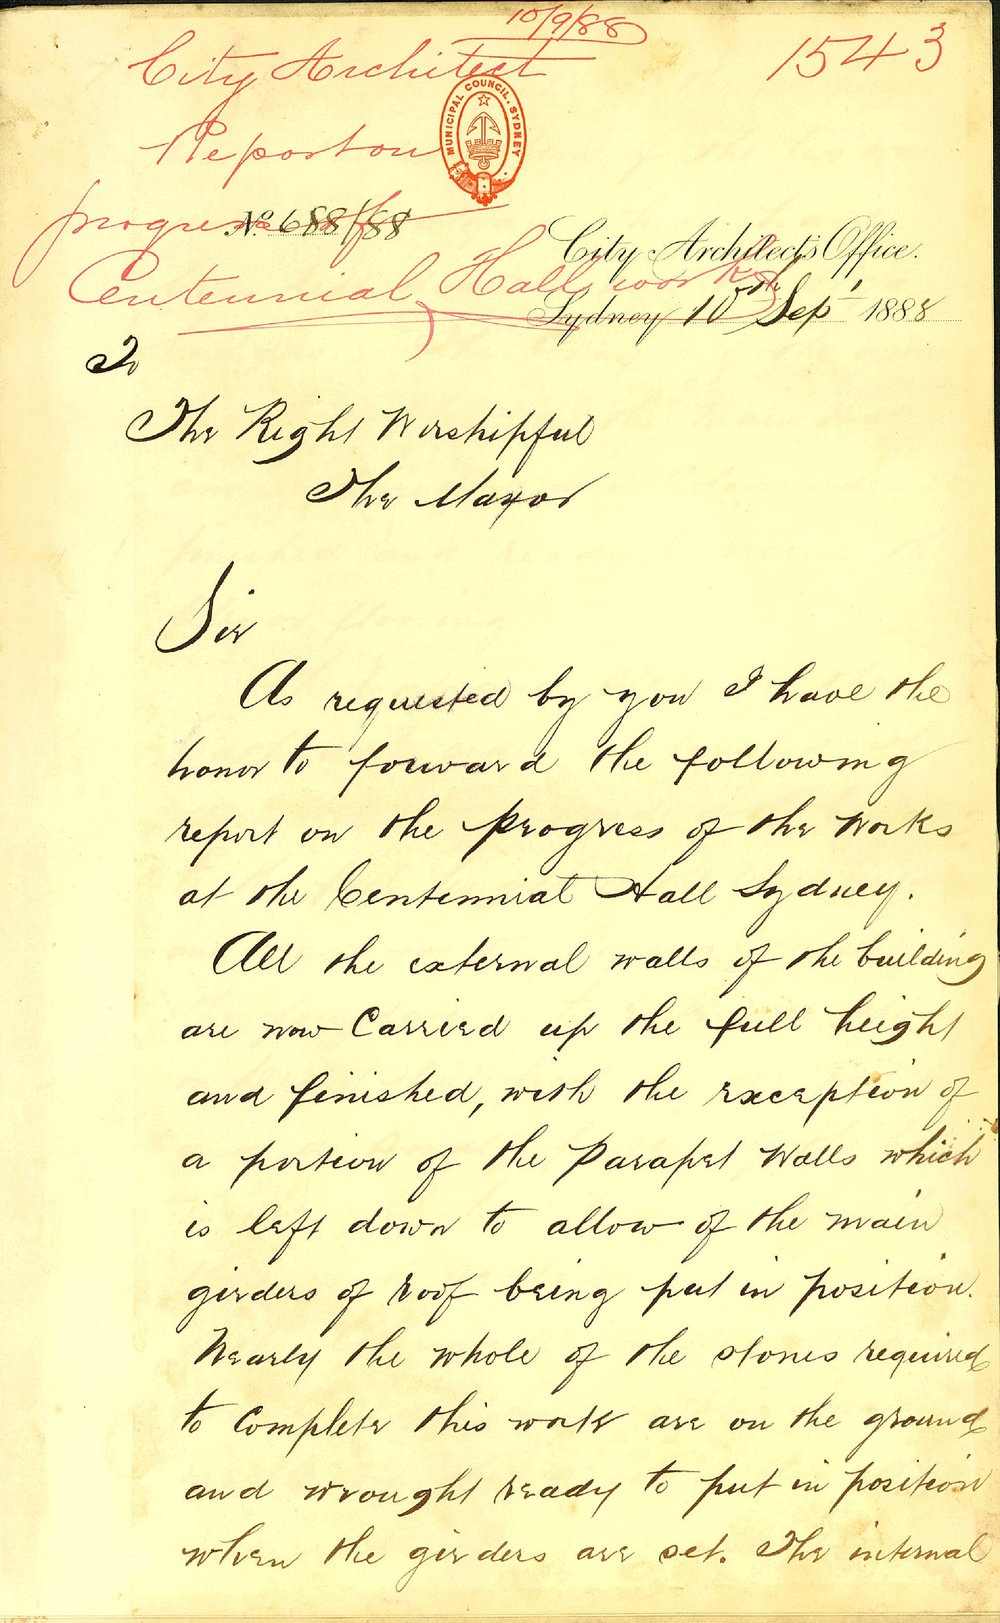 10/9/88
1543
City Architect
Report on
progress of
Centennial Hall works
MUNICIPAL COUNCIL. SYDNEY
No. 688/88
City Architect's Office.
Sydney 10th Sep 1888
To
The Right Worshipful
The Mayor
Sir
As requested by you I have the
honor to forward the following
report on the progress of the Works
at the Centennial Hall Sydney.
All the external walls of the building
are now Carried up the full height
and finished, with the exception of
a portion of the Parapet Walls which
is left down to allow of the main
girders of roof being put in position.
Nearly the whole of the stones required
to Complete this work are on the ground
and wrought ready to put in position
when the girders are set. The internal